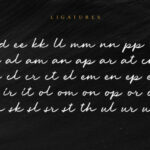 LIGATURES
dd ee kk ll mm nn pp
al am an ap ar at
cl cr ct el em en ep
ir it ol om on op or
sk sl sr st th ul ur